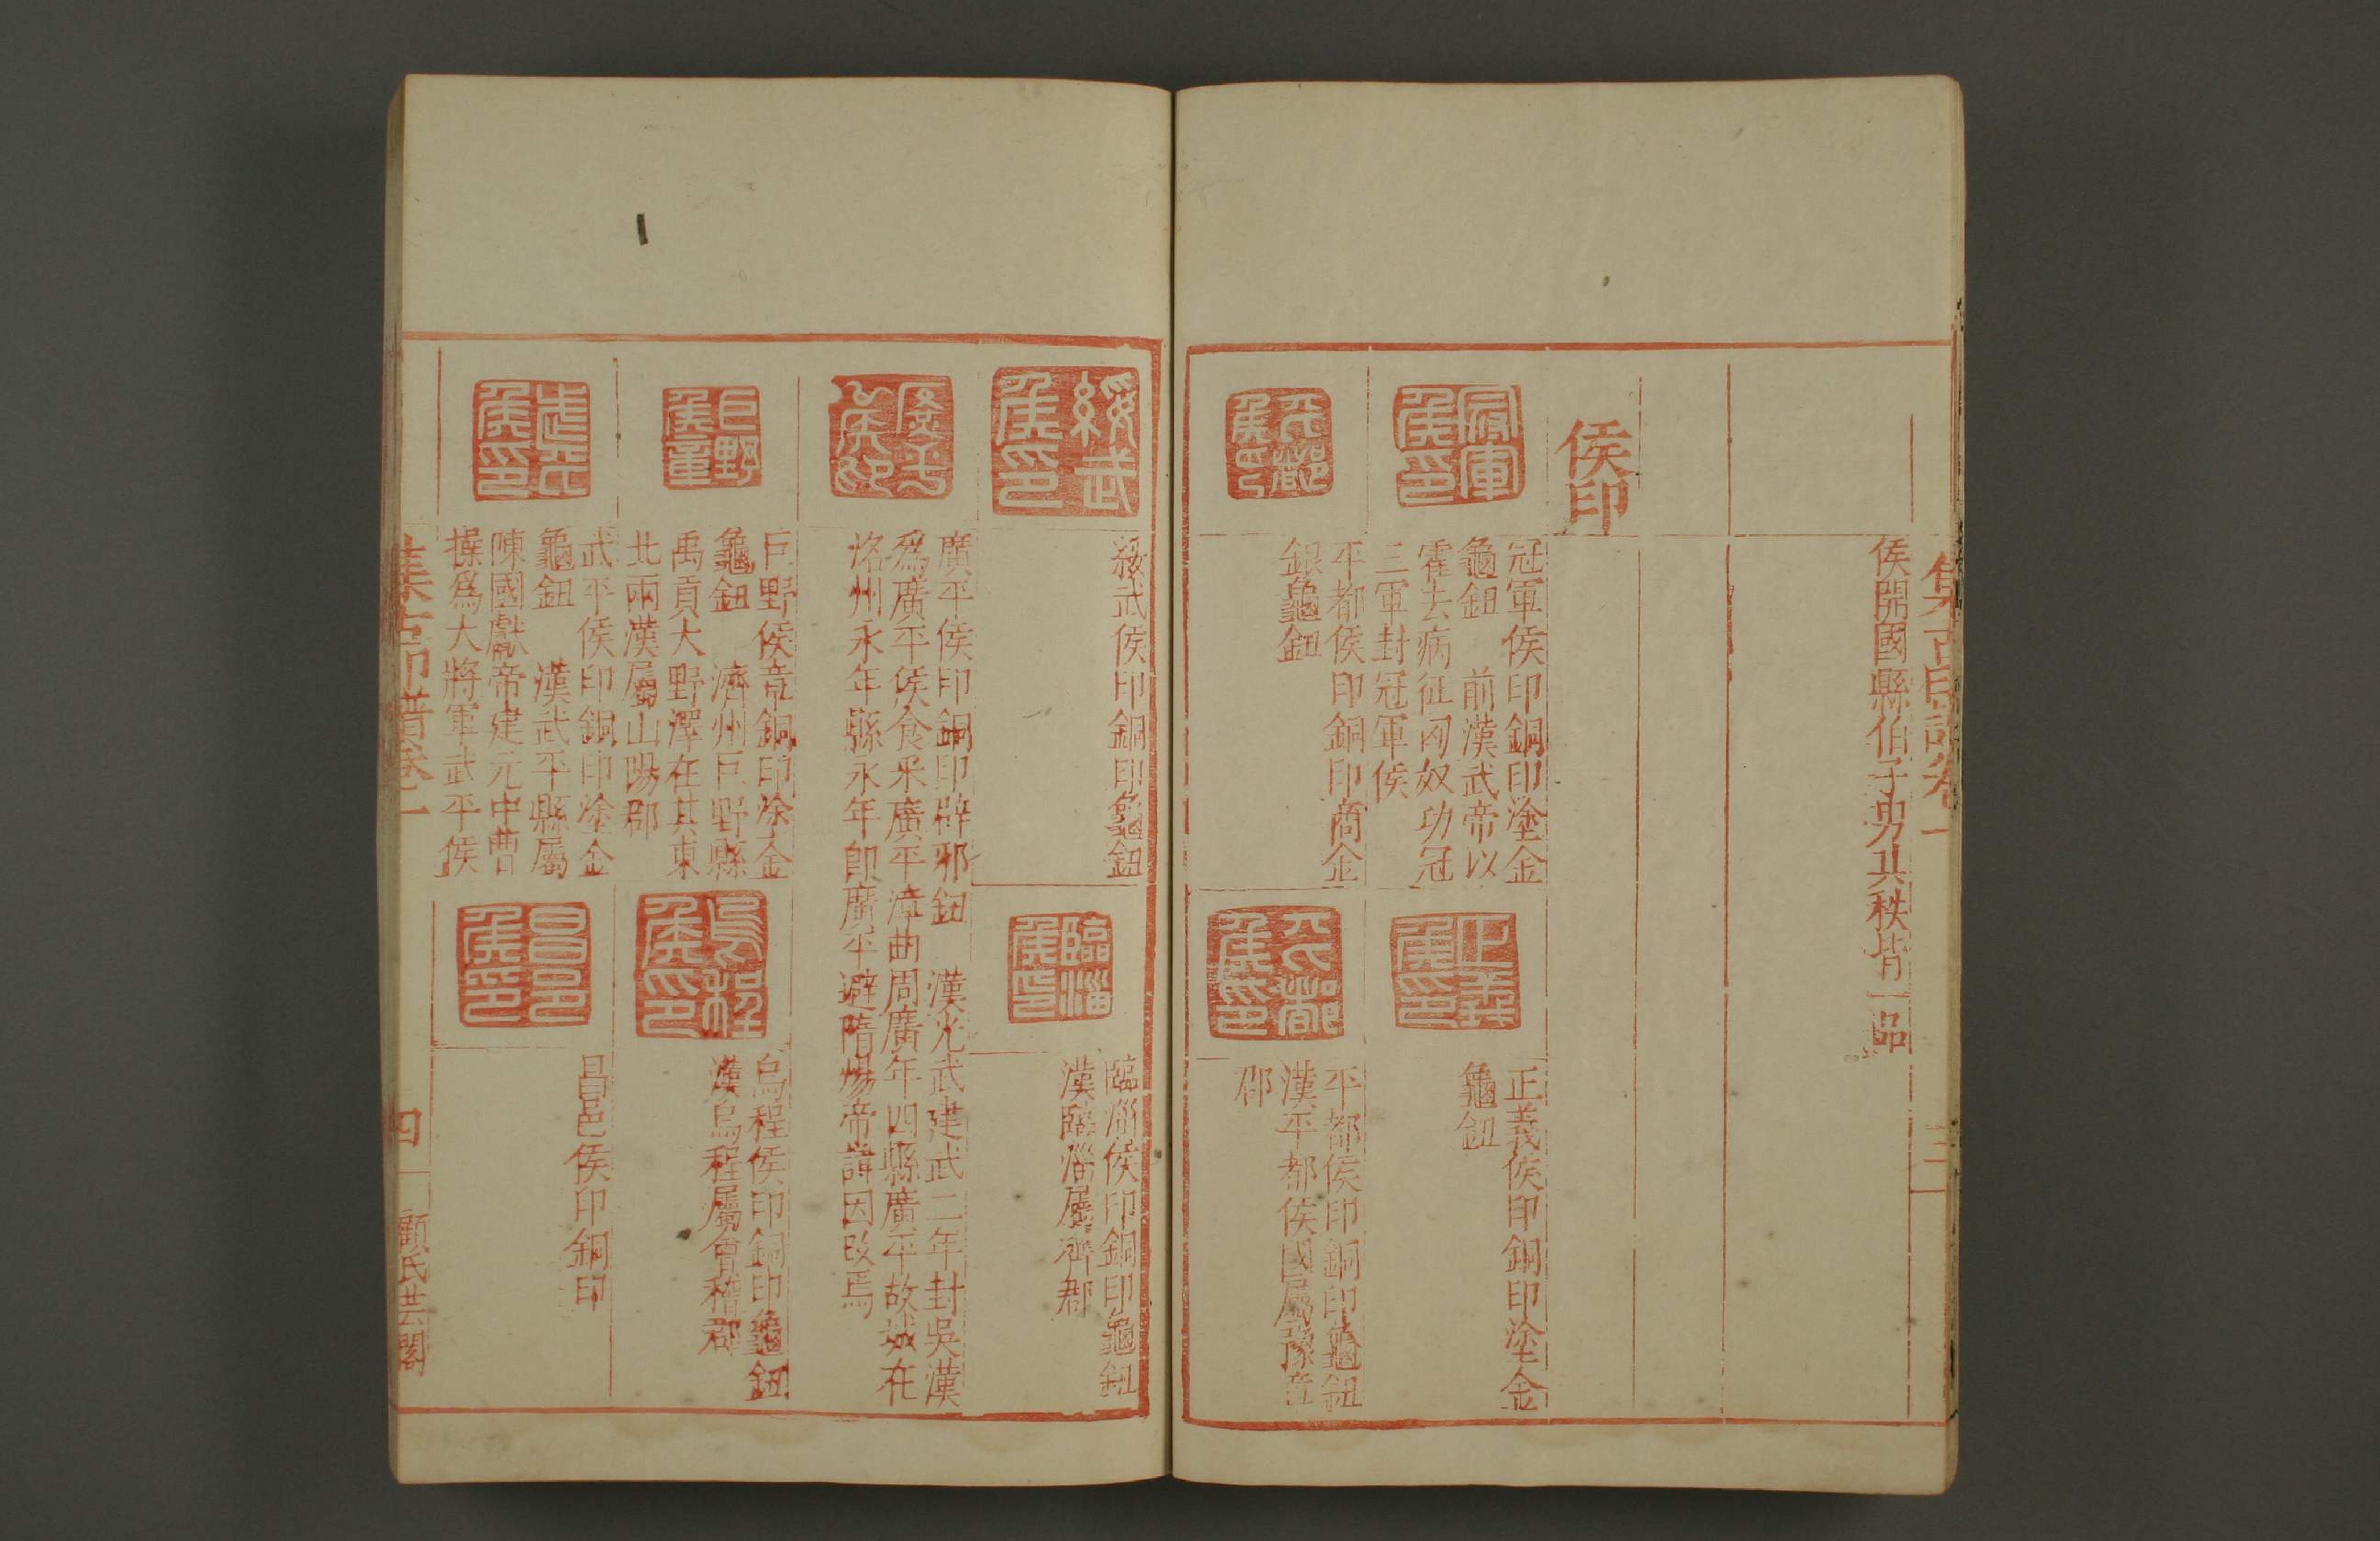 集古印譜卷一
三
侯開國縣伯子男其秩皆一品
侯印
冠軍侯印
冠軍侯印銅印塗金
龜鈕　前漢武帝以
霍去病征匈奴功冠
三軍封冠軍侯
正義侯印
正義侯印銅印塗金
龜鈕
平都侯印
平都侯印銅印商金
銀龜鈕
平都侯印
平都侯印銅印龜鈕
漢平都侯國屬豫章
郡
綏武侯印
綏武侯印銅印龜鈕
臨淄侯印
臨淄侯印銅印龜鈕
漢臨淄屬齊郡
廣平侯印
廣平侯印銅印辟邪鈕　漢光武建武二年封吳漢
爲廣平侯食采廣平漳曲周廣年四縣廣平故城在
洛州永年縣永年即廣平避隋煬帝諱因改焉
巨野侯章
巨野侯章銅印塗金
龜鈕　濟州巨野縣
禹貢大野澤在其東
北兩漢屬山陽郡
烏程侯印
烏程侯印銅印龜鈕
漢烏程屬會稽郡
武平侯印
武平侯印銅印塗金
龜鈕　漢武平縣屬
陳國獻帝建元中曹
操爲大將軍武平侯
昌邑侯印
昌邑侯印銅印
集古印譜卷一
四
顧氏芸閣